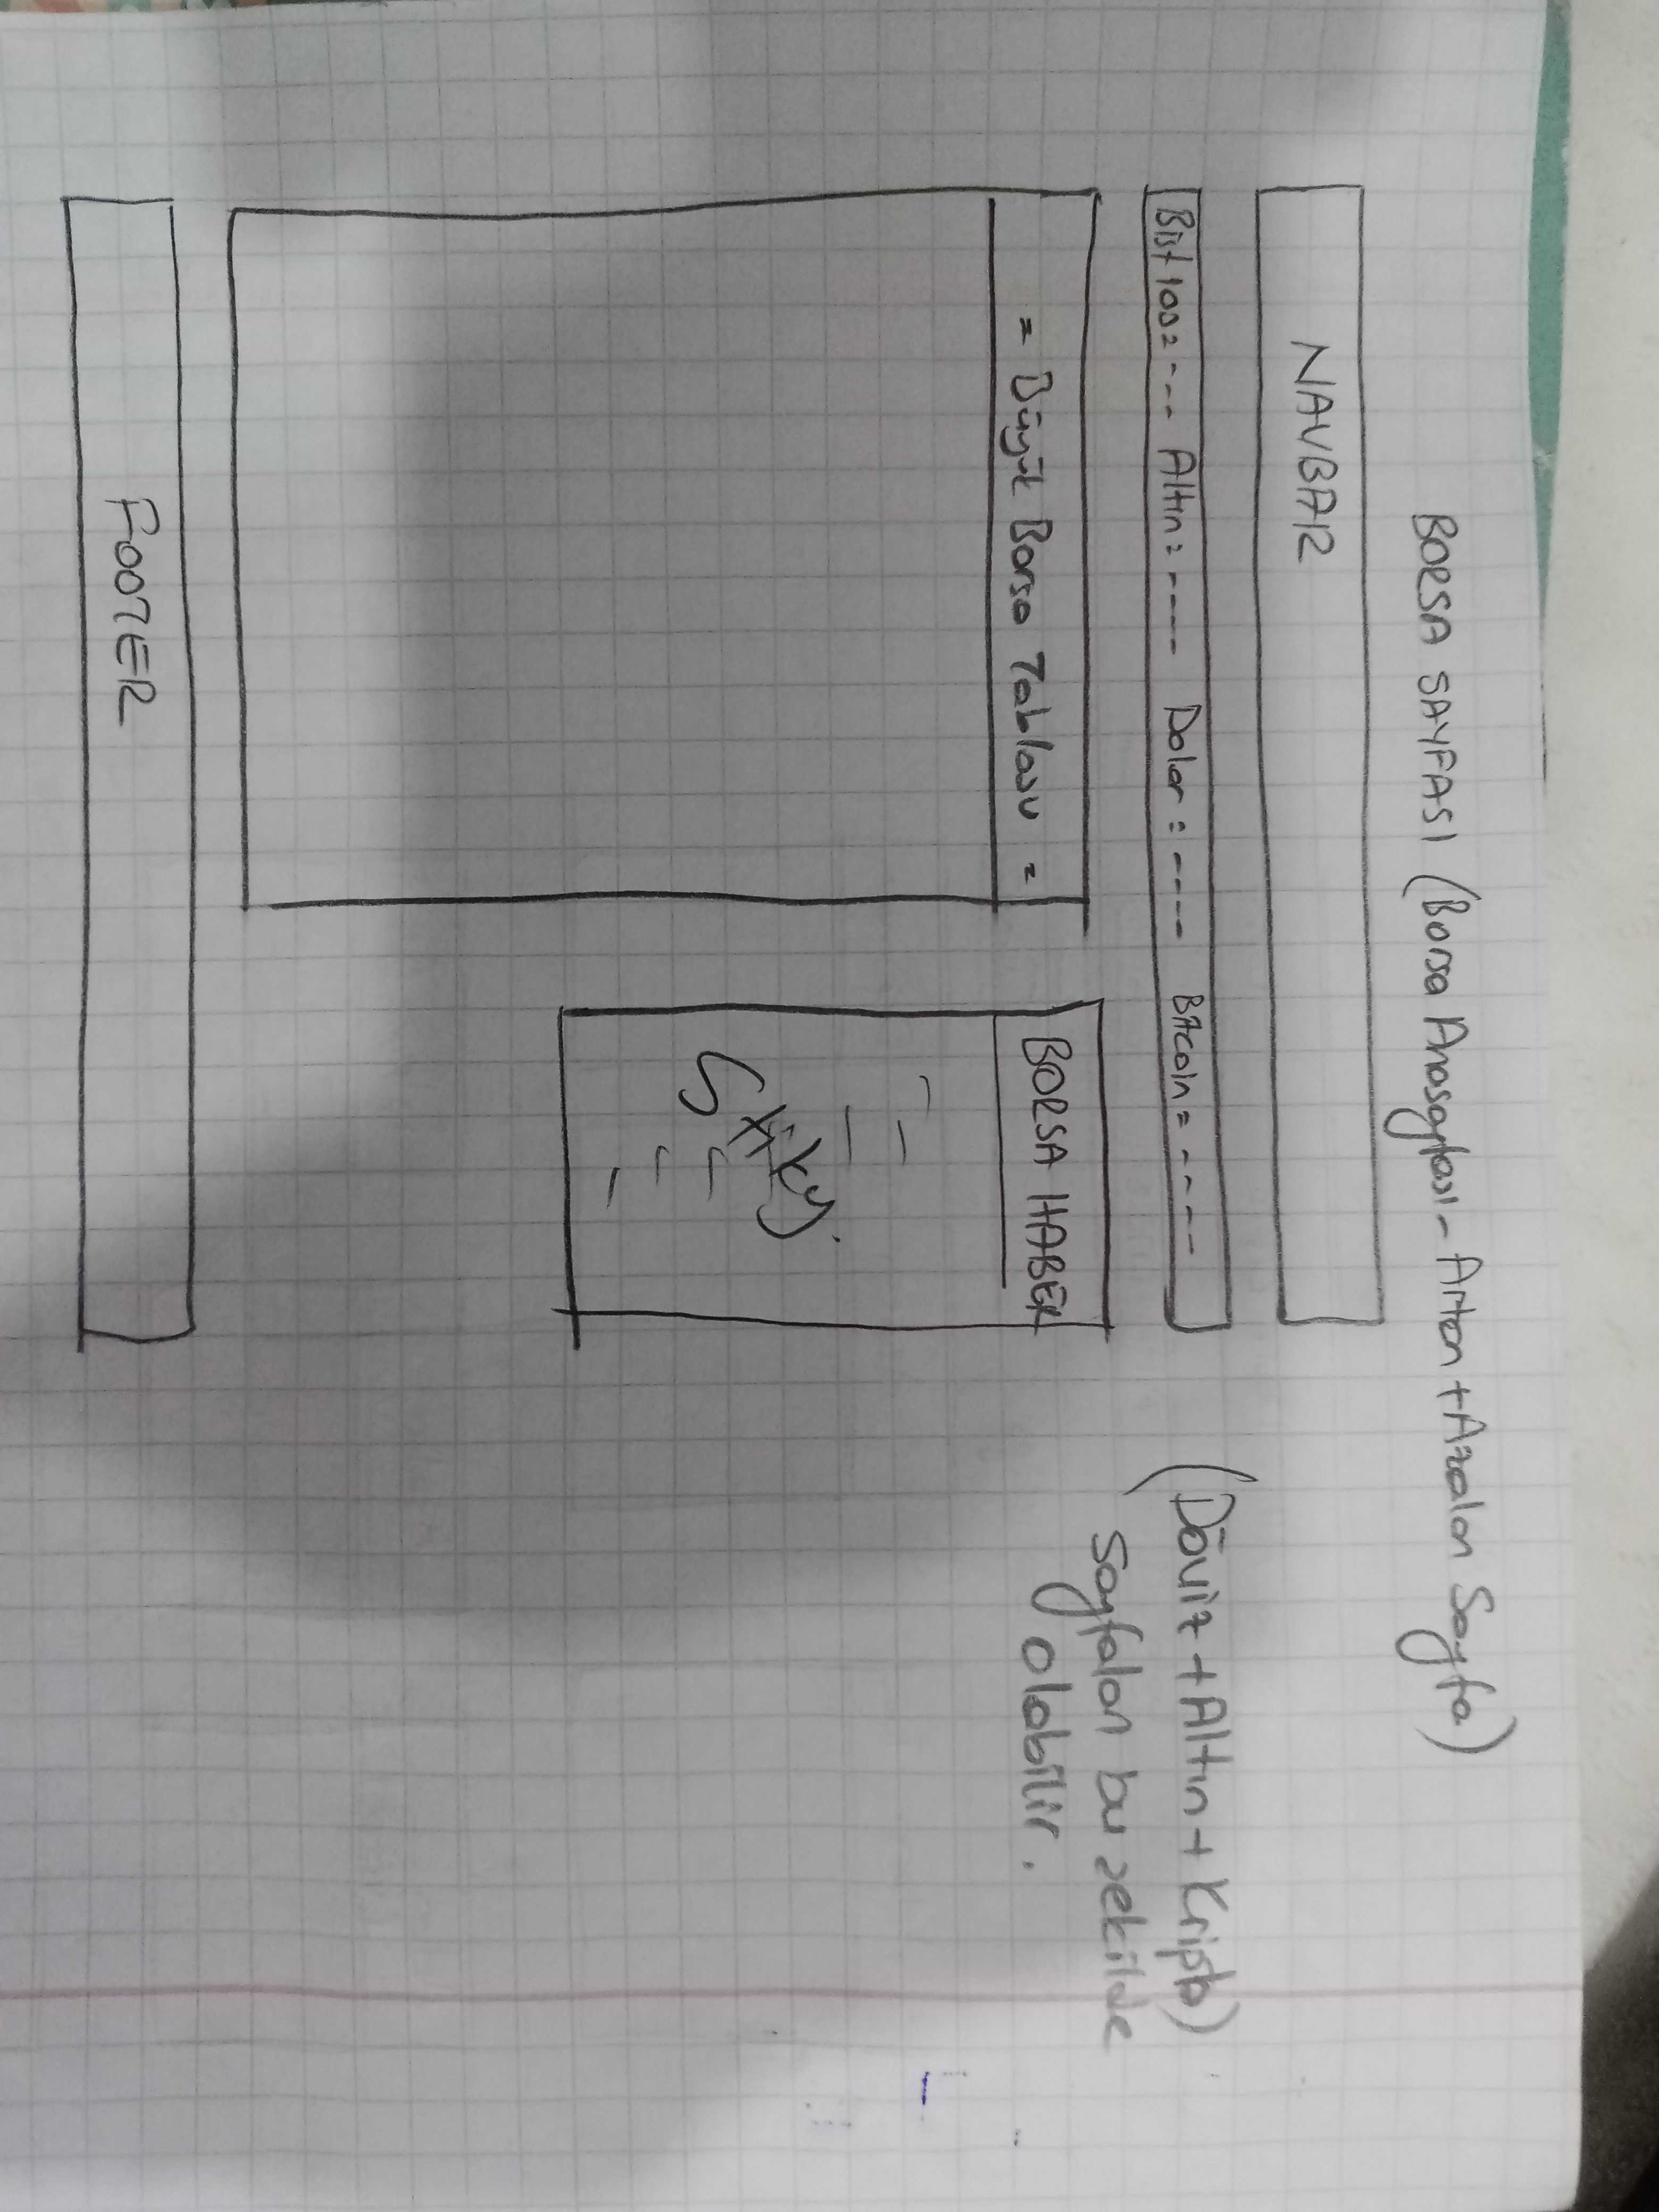 BORSA SAYFASI (Borsa Anasayfası - Artan + Azalan Sayfa)
NAVBAR
Bist 100 = --- Altın = ---- Dolar = ---- Bitcoin = -----
= Büyük Borsa Tablosu =
BORSA HABER
Sticky
(Döviz + Altın + Kripto)
Sayfaları bu şekilde
olabilir.
FOOTER